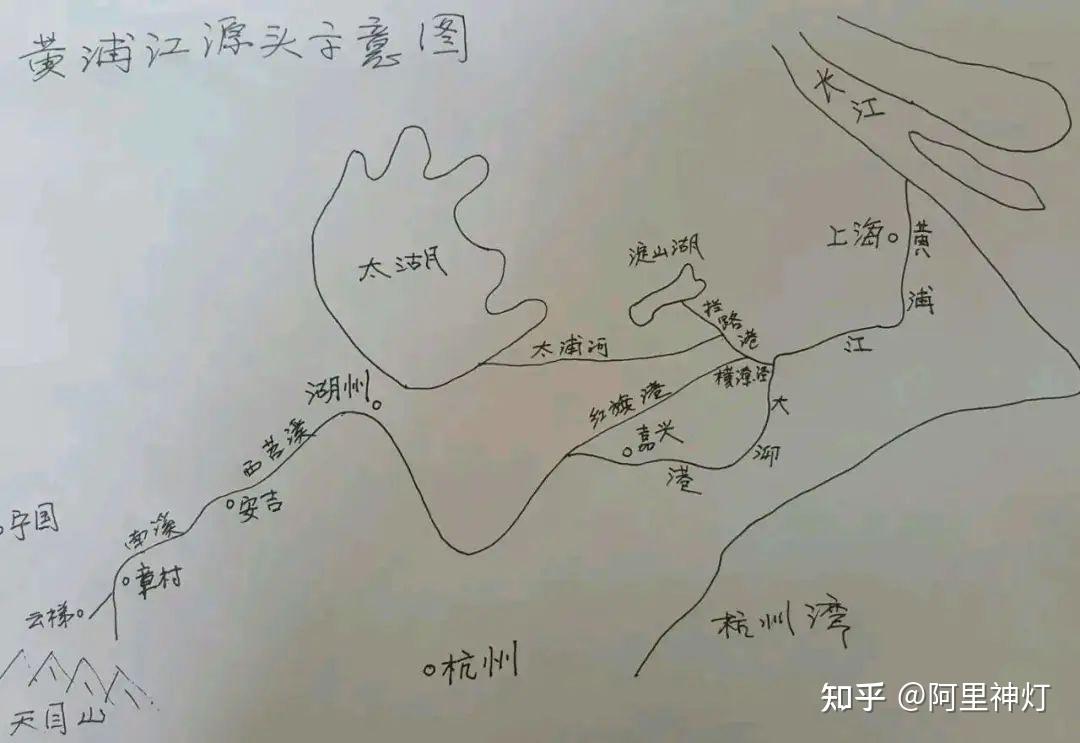 黄浦江源头示意图
长江
上海
黄浦江
淀山湖
太湖
拦路港
太浦河
横潦泾
红旗港
大泖港
嘉兴
湖州
西苕溪
安吉
宁国
南溪
章村
云梯
天目山
杭州
杭州湾
知乎 @阿里神灯